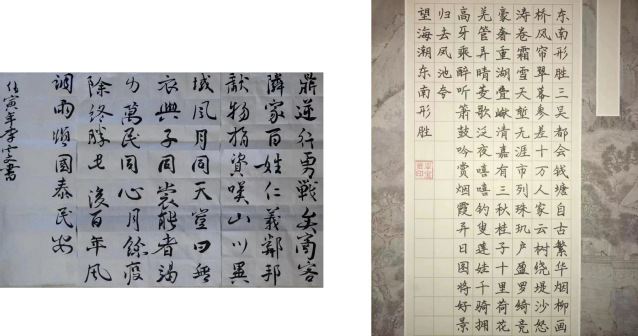 鼎逆行勇戰矣寄客
隣家百姓仁義鄰邦
献物捐資嘆山川異
域風月同天豈曰無
衣與子同裳能者竭
力萬民同心月餘疫
除終勝也後百年風
調雨順國泰民安
壬寅年李書
东南形胜三吴都会钱塘自古繁华烟柳画
桥风帘翠幕参差十万人家云树绕堤沙怒
涛卷霜雪天堑无涯市列珠玑户盈罗绮竞
豪奢重湖叠巘清嘉有三秋桂子十里荷花
羌管弄晴菱歌泛夜嘻嘻钓叟莲娃千骑拥
高牙乘醉听箫鼓吟赏烟霞弄日图将好景
归去凤池夸
望海潮东南形胜